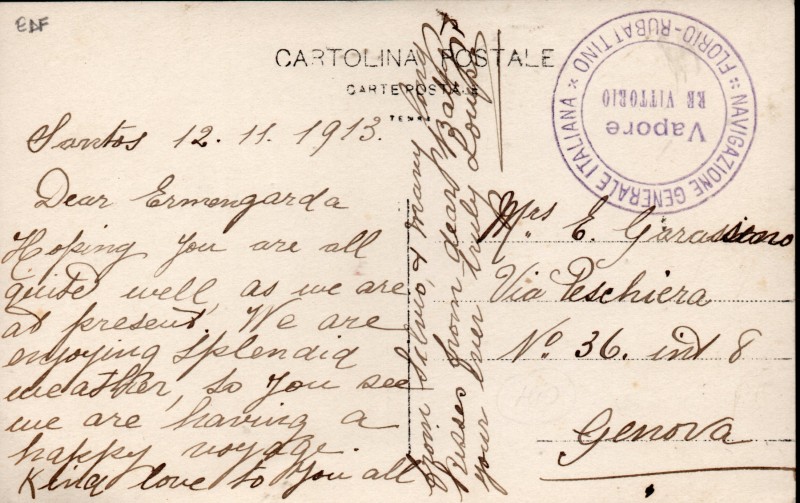 EDF
CARTOLINA POSTALE
CARTE POSTALE
NAVIGAZIONE GENERALE ITALIANA
FLORIO-RUBATTINO
Vapore
RE VITTORIO
Santos 12.11.1913.
Dear Ermengarda
Hoping you are all
quite well, as we are
at present. We are
enjoying splendid
weather, so you see
we are having a
happy voyage.
Kind love to you all
from Silvio, & many long
Kisses from dear Baby &
your ever truly
Mrs E. Garassino
Via Peschiera
No. 36. int 8
Genova